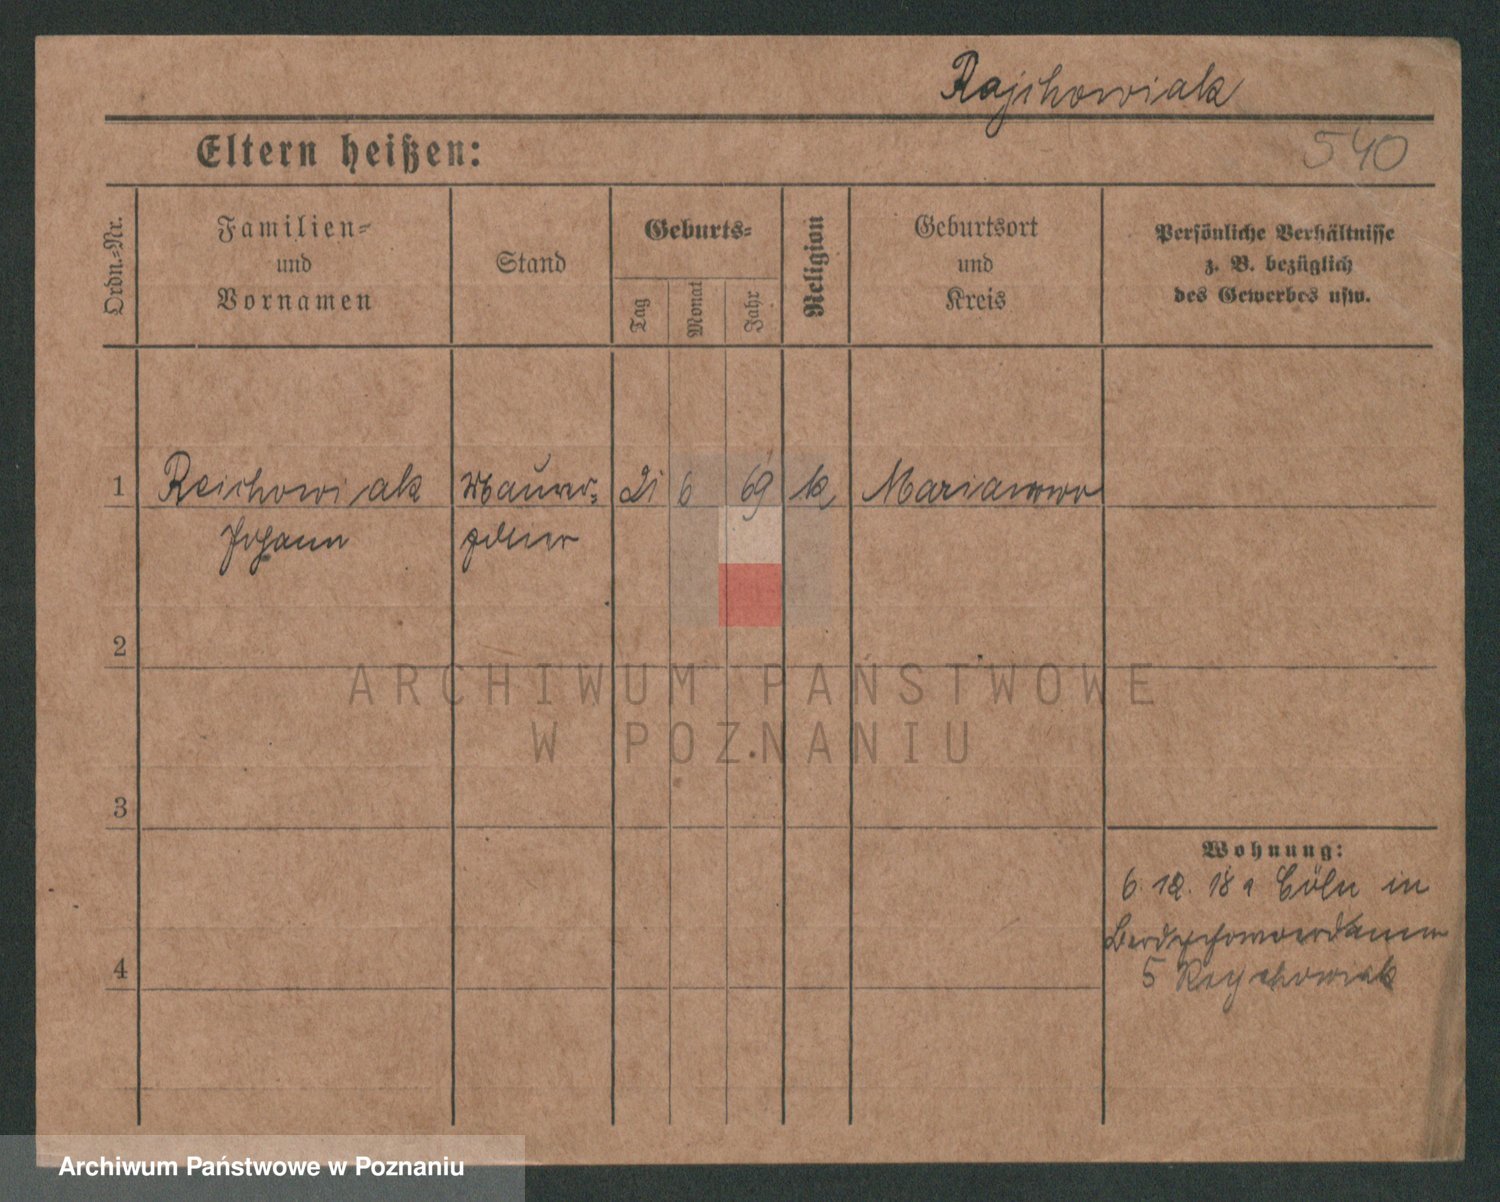 Rajchowiak
Eltern heißen:
540
Ordn.-Nr.
Familien-
und
Vornamen
Stand
Geburts-
Tag
Monat
Jahr
Religion
Geburtsort
und
Kreis
Persönliche Verhältnisse
z. B. bezüglich
des Gewerbes usw.
1
Reichowiak
Maurer-
21
6
69
k
Marianowo
Johann
polier
2
ARCHIWUM PAŃSTWOWE
W POZNANIU
3
Wohnung:
6. 12. 18 Cöln in
4
5
Archiwum Państwowe w Poznaniu